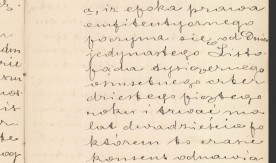 a, iż epoka prawa
emfiteutycznego
poczyna się od Dnia
jedynastego Listo-
pada tysiącznego
ośmsetnego czter-
dziestego piątego
roku i trwać ma
lat dwadzieścia po
którem to czasie
konsens odnawia